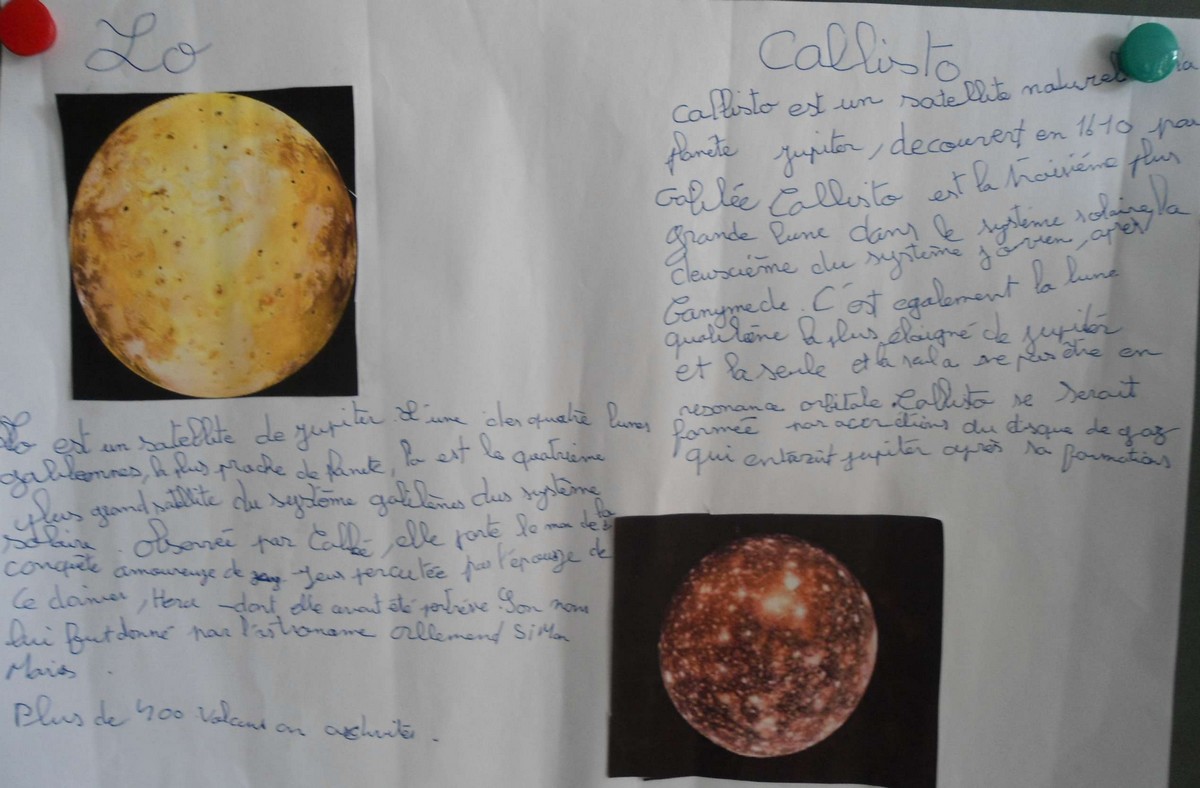 Lo
Io est un satellite de jupiter L'une des quatre lunes
galiléennes, la plus proche de planete, la est la quatrième
plus grand satéllite du système galiléenes dus système
solaire. Observée par Galilé, elle porte le nom de la
conquête amoureuze de percutée par l'épouze de
ce dernier, Hera dont elle avait été prêtrése. Son nom
lui fut donné par l'astronome allemend SiMon
Marios.
Plus de 400 volcans en activités.
Callisto
Callisto est un satellite naturel la
planète jupiter, decouvert en 1610 par
Galilée Callisto est la troisiéme plus
grande lune dans le système solaire, la
deuxième du système jovien, après
Ganymede. C'est egalement la lune
galiléene la plus éloigné de jupiter
et la seule et la seula ne pas être en
resonance orbitale Callisto se serait
formée par accrétions du disque de gaz
qui entourait jupiter après sa formations